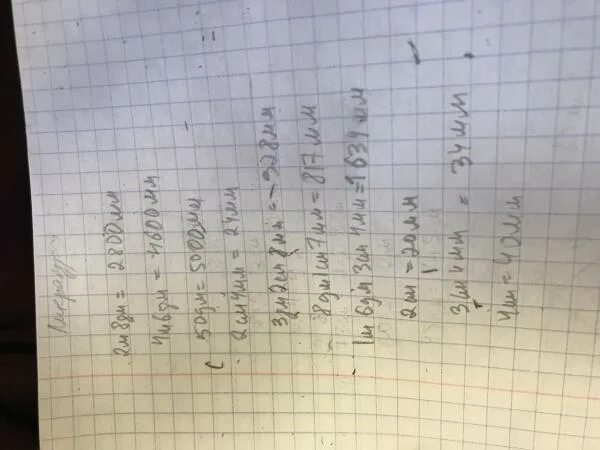 2м8дм = 2800мм
4м6дм = 4600мм
50дм = 5000мм
2см4мм = 24мм
3дм2см8мм = 328мм
8дм1см7мм = 817мм
1м6дм3см4мм = 1634мм
2см = 20мм
3см4мм = 34мм
4см = 40мм